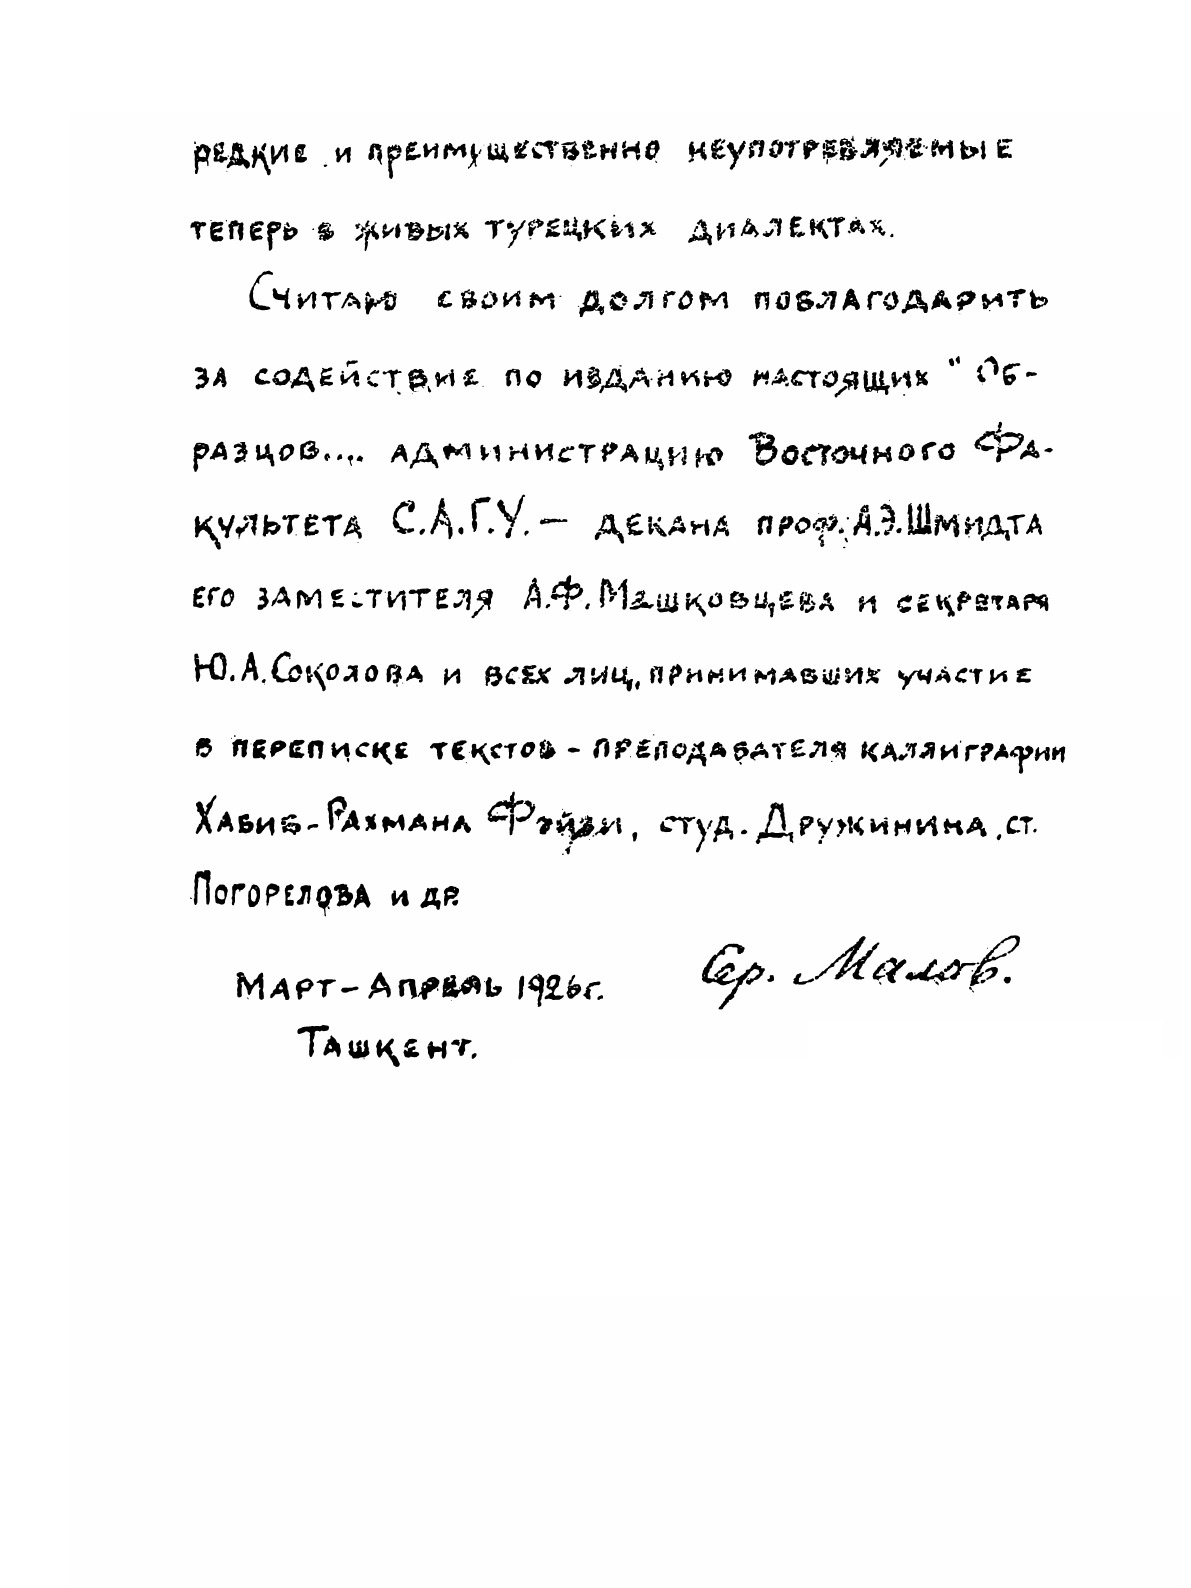 редкие и преимущественно неупотребляемые
теперь в живых турецких диалектах.
Считаю своим долгом поблагодарить
за содействие по изданию настоящих "Об-
разцов.... администрацию Восточного Фа-
культета С.А.Г.У. — декана проф. А.Э.Шмидта
его заместителя А.Ф.Машковцева и секретаря
Ю.А.Соколова и всех лиц, принимавших участие
в переписке текстов - преподавателя каллиграфии
Хабиб-Рахмана Фэйзи, студ. Дружинина, ст.
Погорелова и др.
Сер. Малов.
Март-Апрель 1926г.
Ташкент.